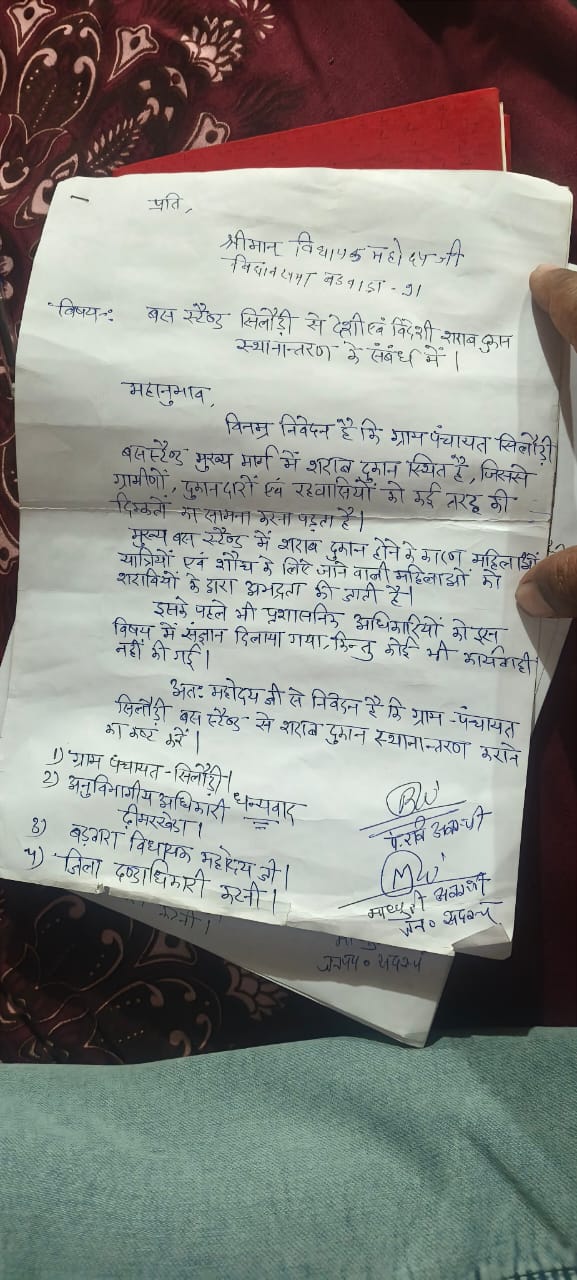 प्रति,
श्रीमान विधायक महोदय जी
विधानसभा बडवाडा - 91
विषय:- बस स्टैण्ड सिलौंडी से देशी एवं विदेशी शराब दुकान
स्थानान्तरण के संबंध में।
महानुभाव,
विनम्र निवेदन है कि ग्राम पंचायत सिलौंडी
बसस्टैण्ड मुख्य मार्ग में शराब दुकान स्थित है, जिससे
ग्रामीणों, दुकानदारों एवं रहवासियों को कई तरह की
दिक्कतों का सामना करना पड़ता है।
मुख्य बस स्टैण्ड में शराब दुकान होने के कारण महिलाओं
यात्रियों एवं शौच के लिए जाने वाली महिलाओं को
शराबियों के द्वारा अभद्रता की जाती है।
इसके पहले भी प्रशासनिक अधिकारियों को इस
विषय में संज्ञान दिलाया गया, किन्तु कोई भी कार्यवाही
नहीं की गई।
अतः महोदय जी से निवेदन है कि ग्राम-पंचायत
सिलौंडी बस स्टैण्ड से शराब दुकान स्थानान्तरण कराने
का कष्ट करें।
1) ग्राम पंचायत - सिलौंडी।
2) अनुविभागीय अधिकारी धन्यवाद
ढीमरखेडा।
3) बड़वारा विधायक महोदय जी।
4) जिला दण्डाधिकारी कटनी।
पं. रवि अवस्थी
माधुरी अवस्थी
जन० सदस्य
कटनी।
जनपद० सदस्य